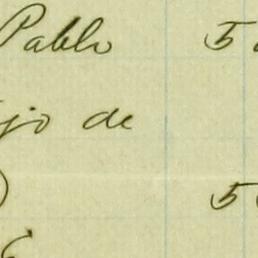 Pablo 5
jo de
5